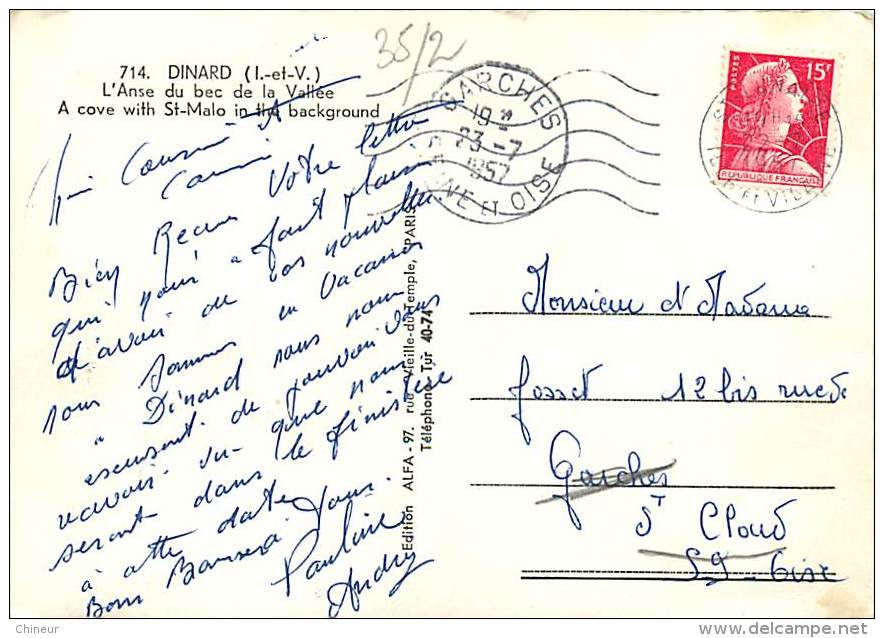 35/2
714. DINARD (I.-et-V.)
L'Anse du bec de la Vallée
A cove with St-Malo in the background
GARCHES
19
23-7
1957
SEINE ET OISE
POSTES
15F
REPUBLIQUE FRANÇAISE
Cousin
Bien Recu Votre lettre
qui nous a fait plaisir
d'avoir de vos nouvelles
nous sommes en Vacances
a Dinard nous nous
escusont de pouvoir vous
revavoir vu que nous
seront dans le finistère
à cette date
Bons Baisers à Tous.
Pauline
André
Edition ALFA - 97, rue Vieille-du-Temple, PARIS
Téléphone: Tur 40-74
Monsieur et Madame
Josset 12 bis rue de
Garches
St Cloud
S9 - Oise
Chineur
www.delcampe.net